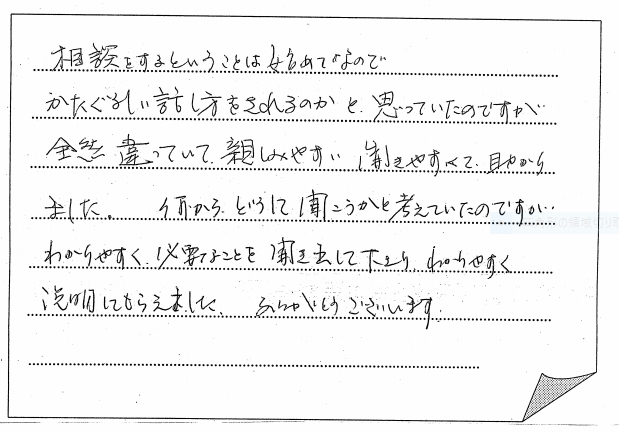 相談をするということは始めてなので
かたぐるしい話し方をされるのかと、思っていたのですが
全然違っていて、親しみやすい 聞きやすくて、助かり
ました。 何から、どうして聞こうかと考えていたのですが…
わかりやすく、必要なことを聞き出して下さり、わかりやすく
説明してもらえました。 ありがとうございます。